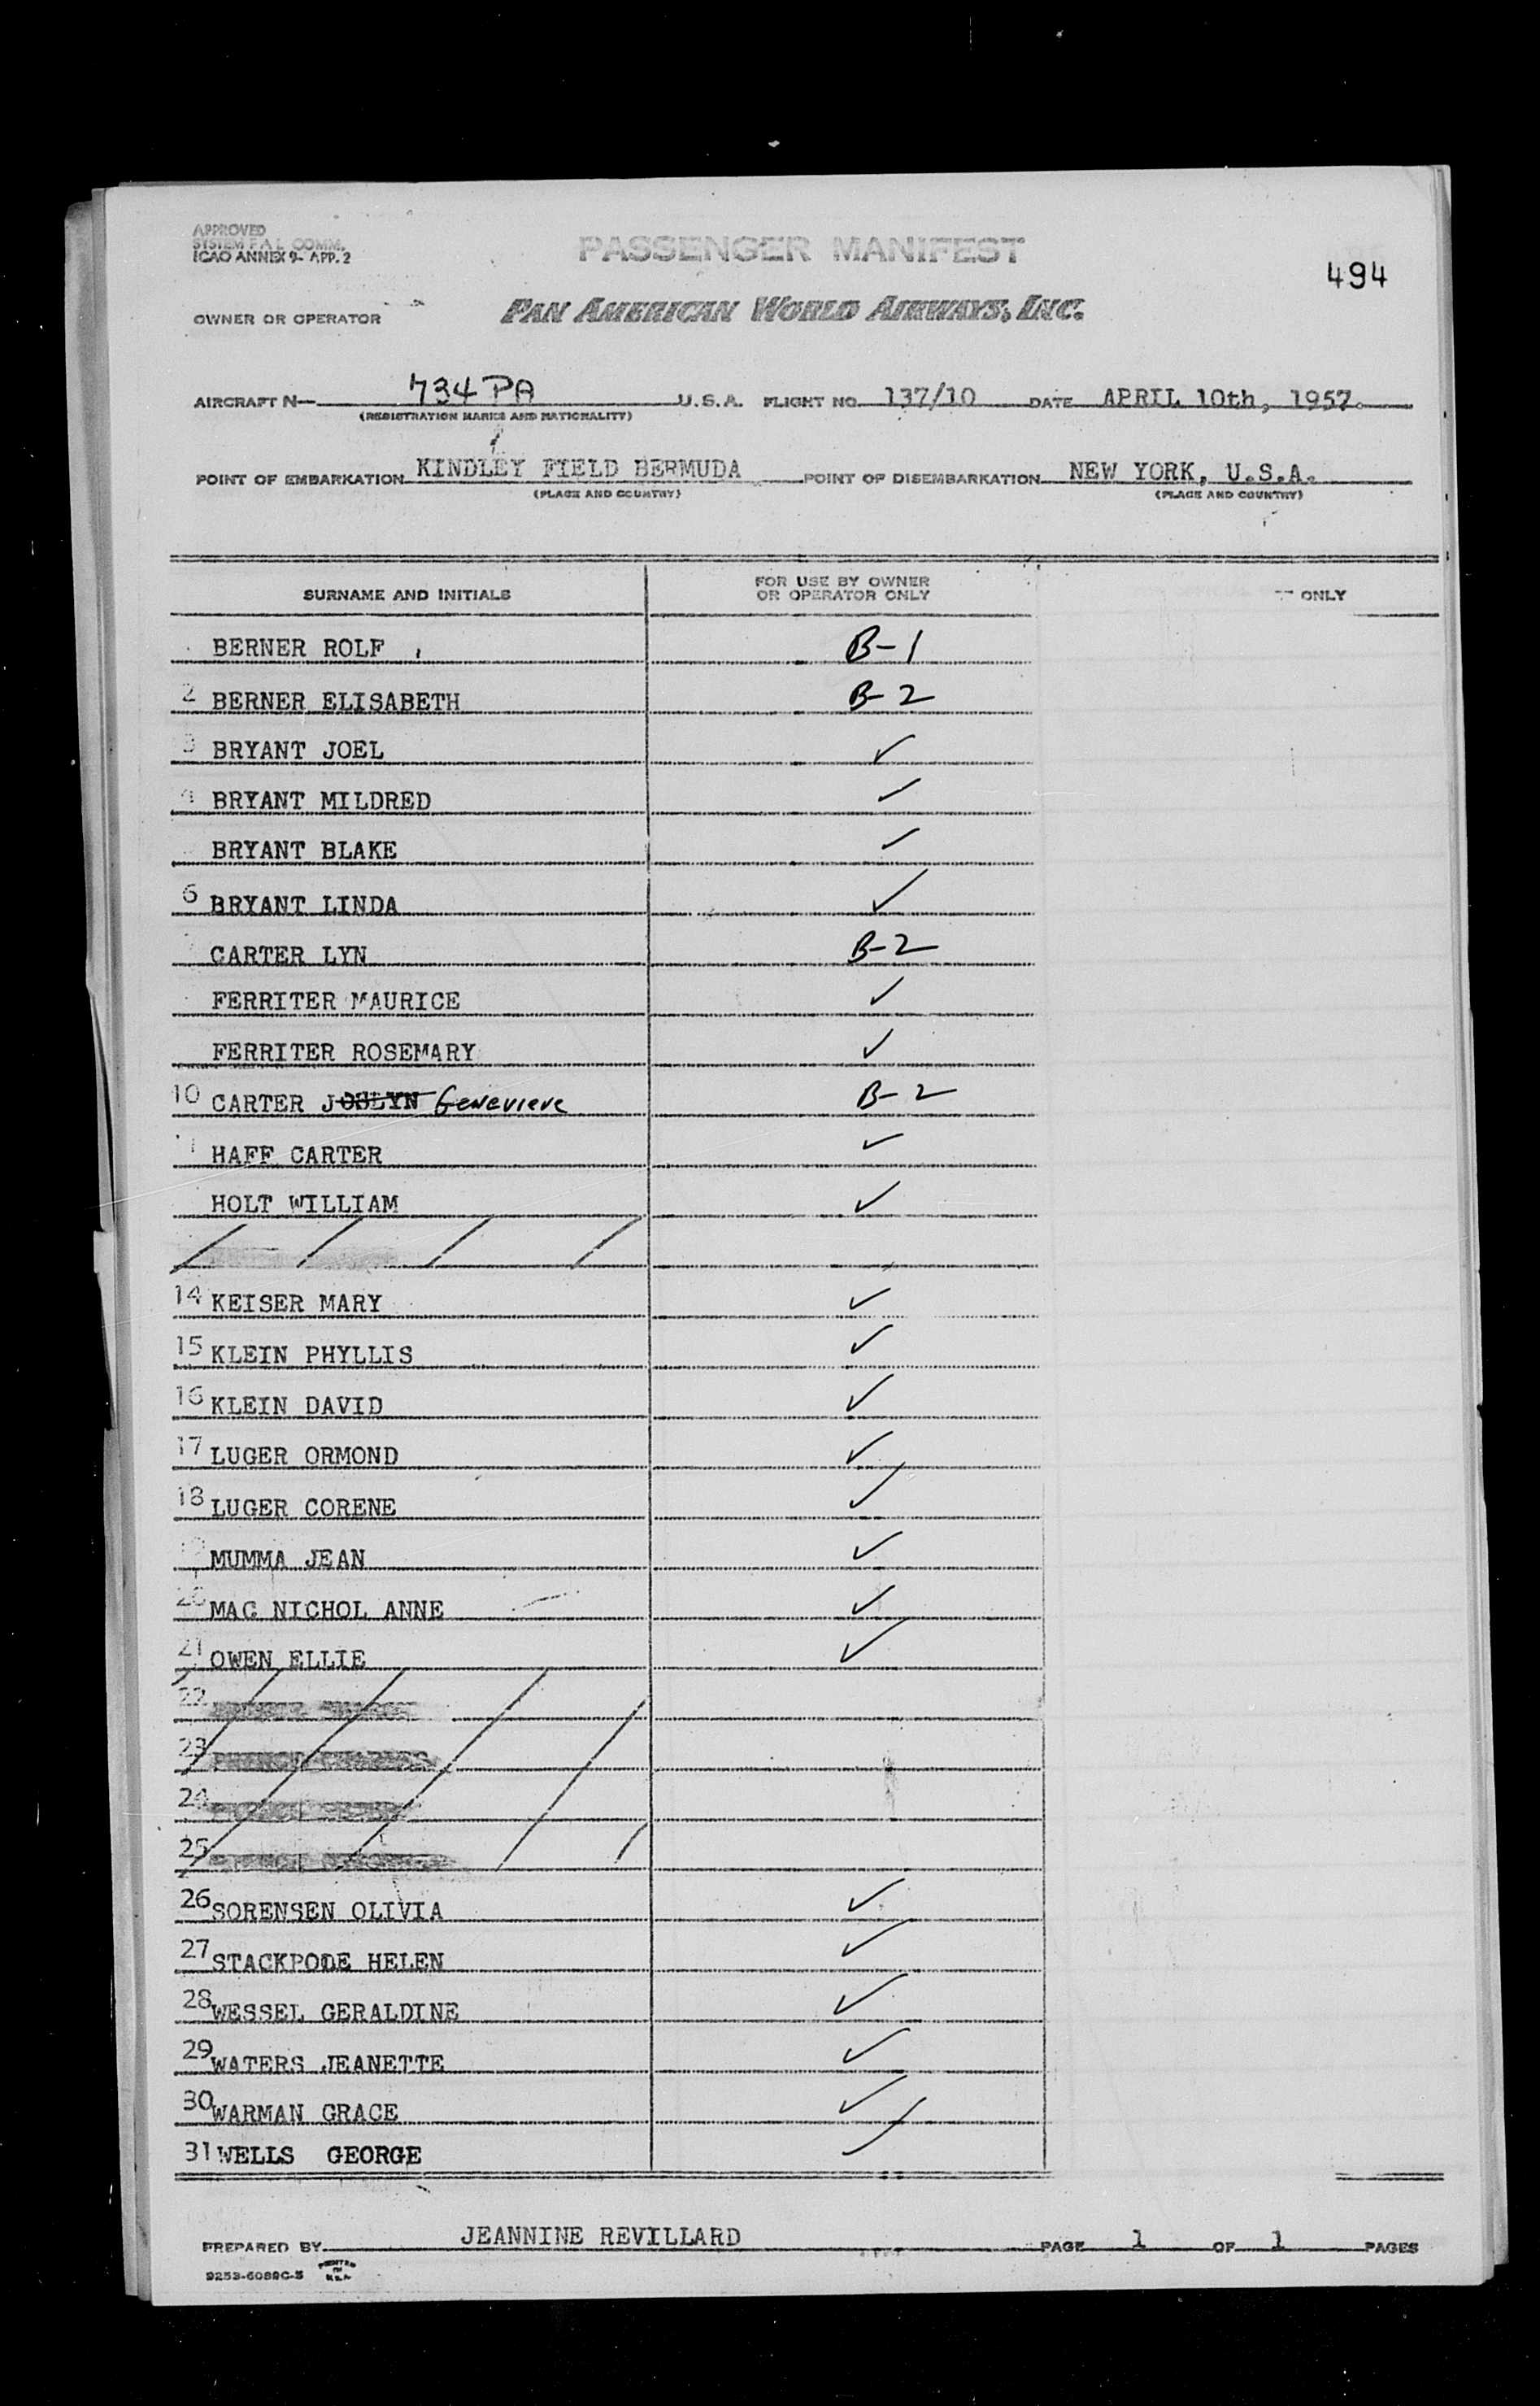 APPROVED
SYSTEM F A L COMM.
ICAO ANNEX 9- APP. 2
PASSENGER MANIFEST
494
OWNER OR OPERATOR
PAN AMERICAN WORLD AIRWAYS, INC.
AIRCRAFT N— 734PA U.S.A. FLIGHT NO. 137/10 DATE APRIL 10th, 1957.
(REGISTRATION MARKS AND NATIONALITY)
POINT OF EMBARKATION KINDLEY FIELD BERMUDA POINT OF DISEMBARKATION NEW YORK, U.S.A.
(PLACE AND COUNTRY) (PLACE AND COUNTRY)
SURNAME AND INITIALS FOR USE BY OWNER OR OPERATOR ONLY ONLY
BERNER ROLF B-1
2 BERNER ELISABETH B-2
3 BRYANT JOEL ✓
4 BRYANT MILDRED ✓
BRYANT BLAKE ✓
6 BRYANT LINDA ✓
CARTER LYN B-2
FERRITER MAURICE ✓
FERRITER ROSEMARY ✓
10 CARTER JOSLYN Genevieve B-2
HAFF CARTER ✓
HOLT WILLIAM ✓
14 KEISER MARY ✓
15 KLEIN PHYLLIS ✓
16 KLEIN DAVID ✓
17 LUGER ORMOND ✓
18 LUGER CORENE ✓
19 MUMMA JEAN ✓
20 MAC NICHOL ANNE ✓
21 OWEN ELLIE ✓
22
23
24
25
26 SORENSEN OLIVIA ✓
27 STACKPODE HELEN ✓
28 WESSEL GERALDINE ✓
29 WATERS JEANETTE ✓
30 WARMAN GRACE ✓
31 WELLS GEORGE ✓
PREPARED BY JEANNINE REVILLARD PAGE 1 OF 1 PAGES
9253-6089C-5 PRINTED IN U.S.A.